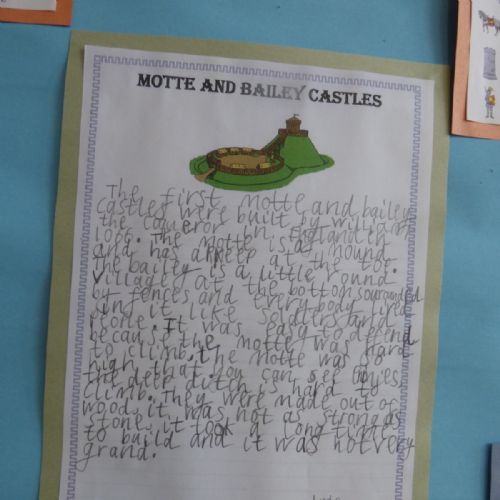 MOTTE AND BAILEY CASTLES
The first motte and bailey
castles were built by william
the conqueror in England in
1066. The motte is a mound
and has a keep at the top.
The bailey is a little round
village at the bottom sourounded
by fences and every body
in it like soldiers
. It was easy to defend
because the motte was hard
to climb. The motte was so
high that you can see
the deep ditch is hard to
climb. They were made out of
wood. it was not as strong as
stone. it took a long time
to build and it was not very
grand.